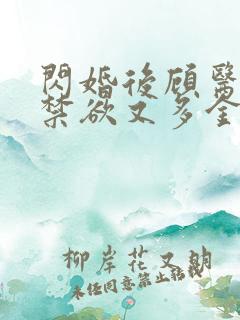 閃婚後顾醫
禁欲又多金
柳岸花又明
未经同意禁止転載